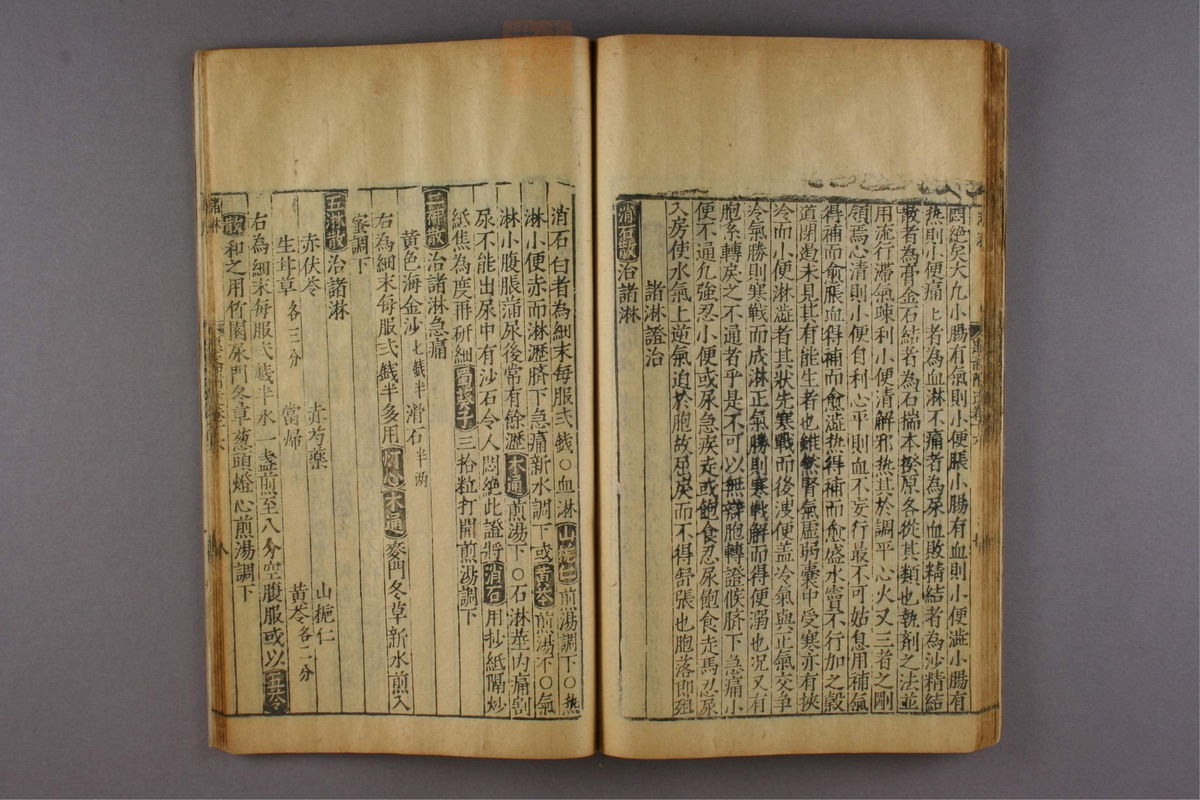 悶絶矣大凡小腸有氣則小便脹小腸有血則小便澁小腸有
熱則小便痛痛者為血淋不痛者為尿血敗精結者為沙精結
散者為膏金石結者為石揣本揆原各從其類也執劑之法並
用流行滯氣疎利小便清解邪熱其於調平心火又三者之剛
領焉心清則小便自利心平則血不妄行最不可姑息用補氣
得補而愈脹血得補而愈澁熱得補而愈盛水竇不行加之穀
道閉遏未見其有能生者也雖然腎氣虛弱囊中受寒亦有挾
冷而小便淋澁者其状先寒戰而後溲便盖冷氣與正氣交争
冷氣勝則寒戰而成淋正氣勝則寒戰解而得便溺也况又有
胞系轉戾之不通者乎是不可以無辯胞轉證候臍下急痛小
便不通凡強忍小便或尿急疾走或飽食忍尿飽食走馬忍尿
入房使水氣上逆氣迫於胞故屈戾而不得舒張也胞落即殂
諸淋證治
消石散 治諸淋
消石白者為細末每服弍錢○血淋山梔仁煎湯調下○熱
淋小便赤而淋瀝臍下急痛新水調下或黄芩煎湯下○氣
淋小腹脹滿尿後常有餘瀝木通煎湯下○石淋莖内痛割
尿不能出尿中有沙石令人悶絶此證將消石用抄紙隔炒
紙焦為度再研細葵子三拾粒打開煎湯調下
散 治諸淋急痛
黄色海金沙七錢半 滑石半兩
右為細末每服弍錢半多用灯心木通麥門冬草新水煎入
蜜調下
五淋散 治諸淋
赤伏苓 赤芍藥 山梔仁
生甘草各三分 當歸 黄芩各二分
右為細末每服弍錢半水一盞煎至八分空腹服或以五苓
散和之用竹園荽門冬草葱頭燈心煎湯調下
諸淋